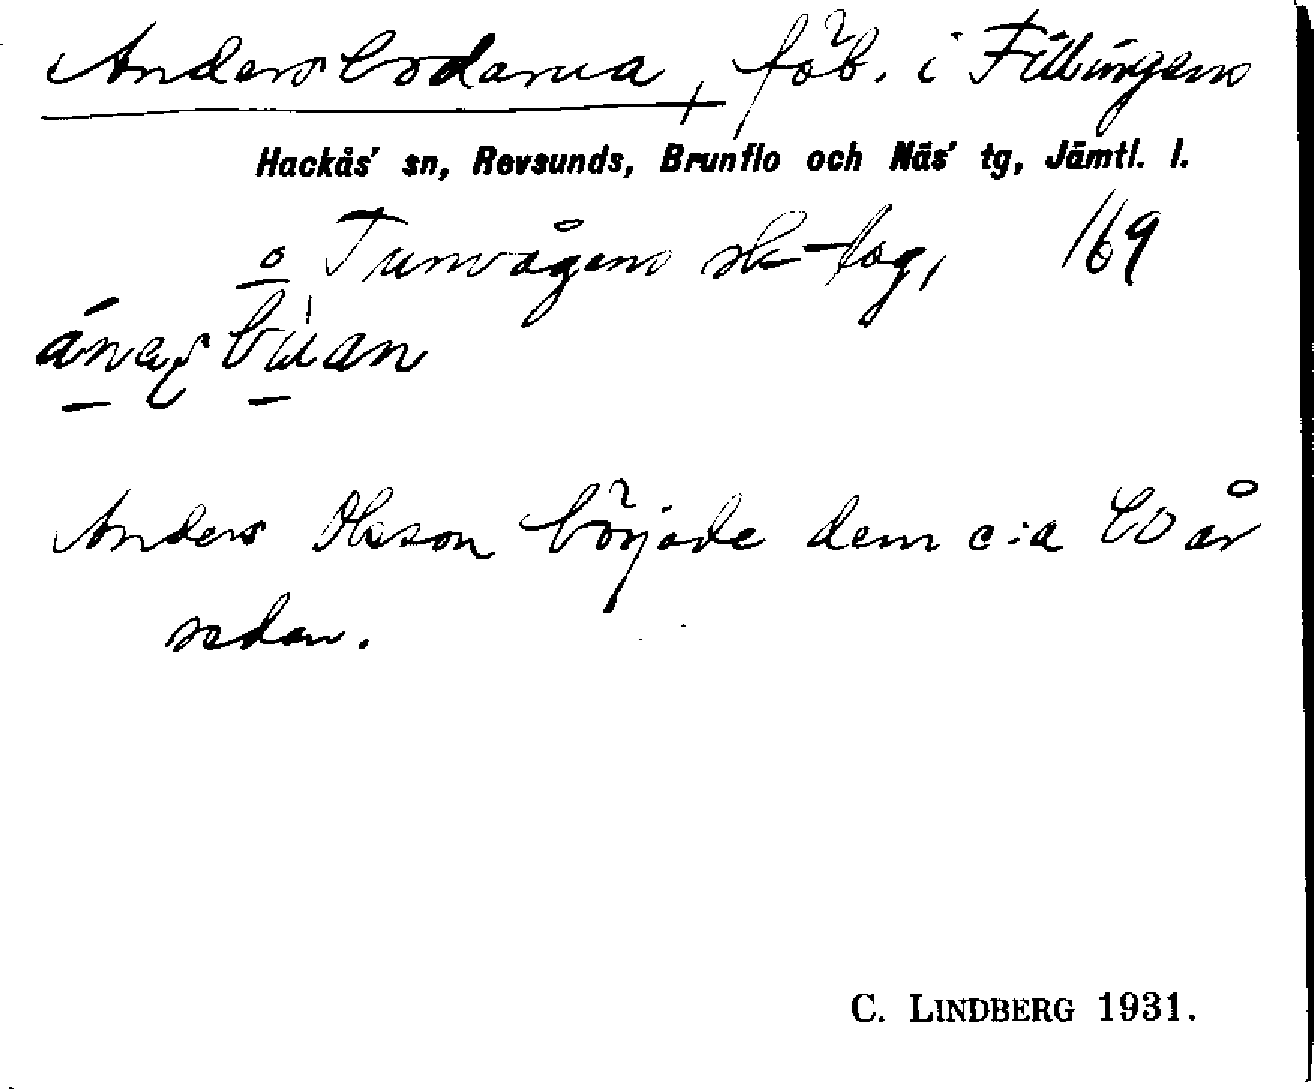 Andersbodarna, fäb. i Fillingens
Hackås' sn, Revsunds, Brunflo och Näs' tg, Jämtl. l.
o Tunvågens sk-lag, 169
Anders Olsson började dem c:a 60 år
sedan.
C. LINDBERG 1931.